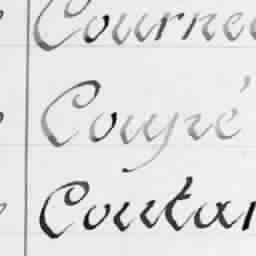 Courne
Couyré
Coutan